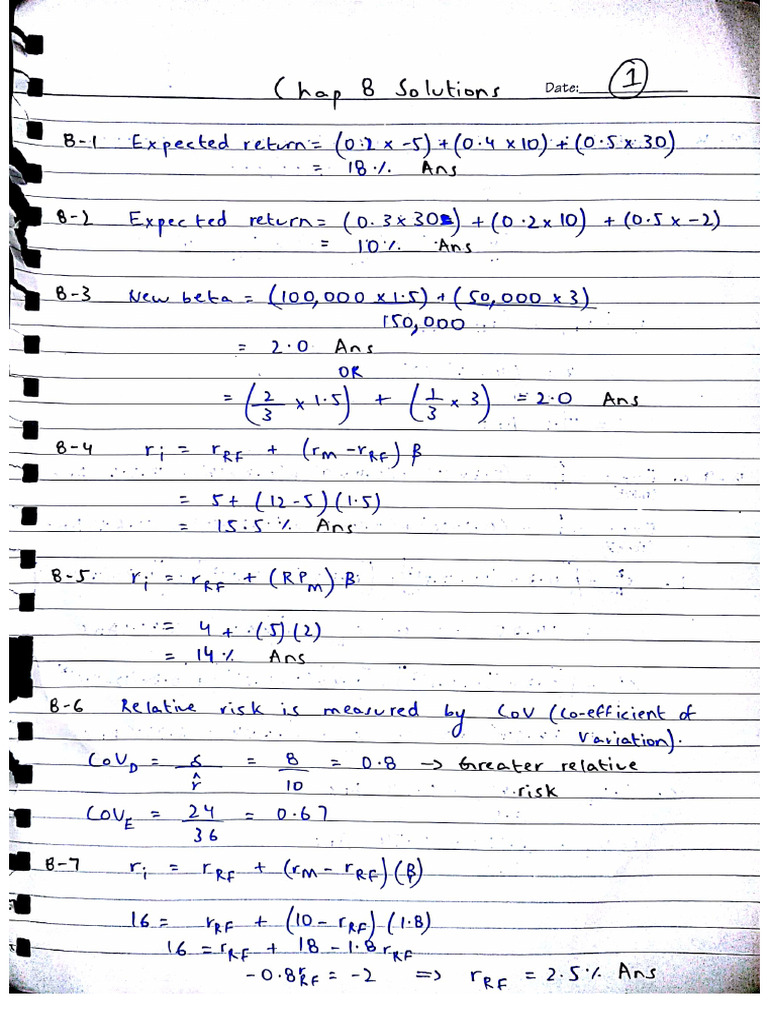 Chap 8 Solutions Date: 1
8-1 Expected return = (0.2 x -5) + (0.4 x 10) + (0.5 x 30)
= 18 % Ans
8-2 Expected return = (0.3 x 30) + (0.2 x 10) + (0.5 x -2)
= 10 % Ans
8-3 New beta = (100,000 x 1.5) + (50,000 x 3)
150,000
= 2.0 Ans
OR
= (2/3 x 1.5) + (1/3 x 3) = 2.0 Ans
8-4 ri = rRF + (rM - rRF) β
= 5 + (12 - 5) (1.5)
= 15.5 % Ans
8-5 ri = rRF + (RPm) β
= 4 + (5) (2)
= 14 % Ans
8-6 Relative risk is measured by COV (Co-efficient of
Variation).
COVD = s/r̂ = 8/10 = 0.8 → Greater relative
risk
COVE = 24/36 = 0.67
8-7 ri = rRF + (rm - rRF) (β)
16 = rRF + (10 - rRF) (1.8)
16 = rRF + 18 - 1.8 rRF
-0.8 rRF = -2 ⇒ rRF = 2.5 % Ans